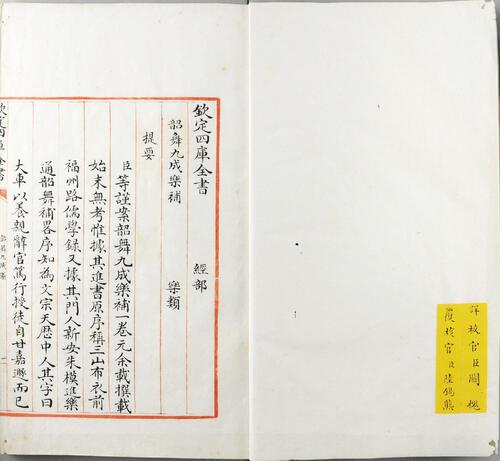 詳校官臣關槐
覆校官臣陸錫熊
欽定四庫全書 經部
韶舞九成樂補 樂類
提要
臣等謹案韶舞九成樂補一卷元余載撰載
始末無考惟據其進書原序稱三山布衣前
福州路儒學錄又據其門人新安朱模進樂
通韶舞補畧序知為文宗天歴中人其字曰
大車以養親辭官篤行授徒自甘嘉遯而已
欽定四庫全書
韶舞九成樂補
一